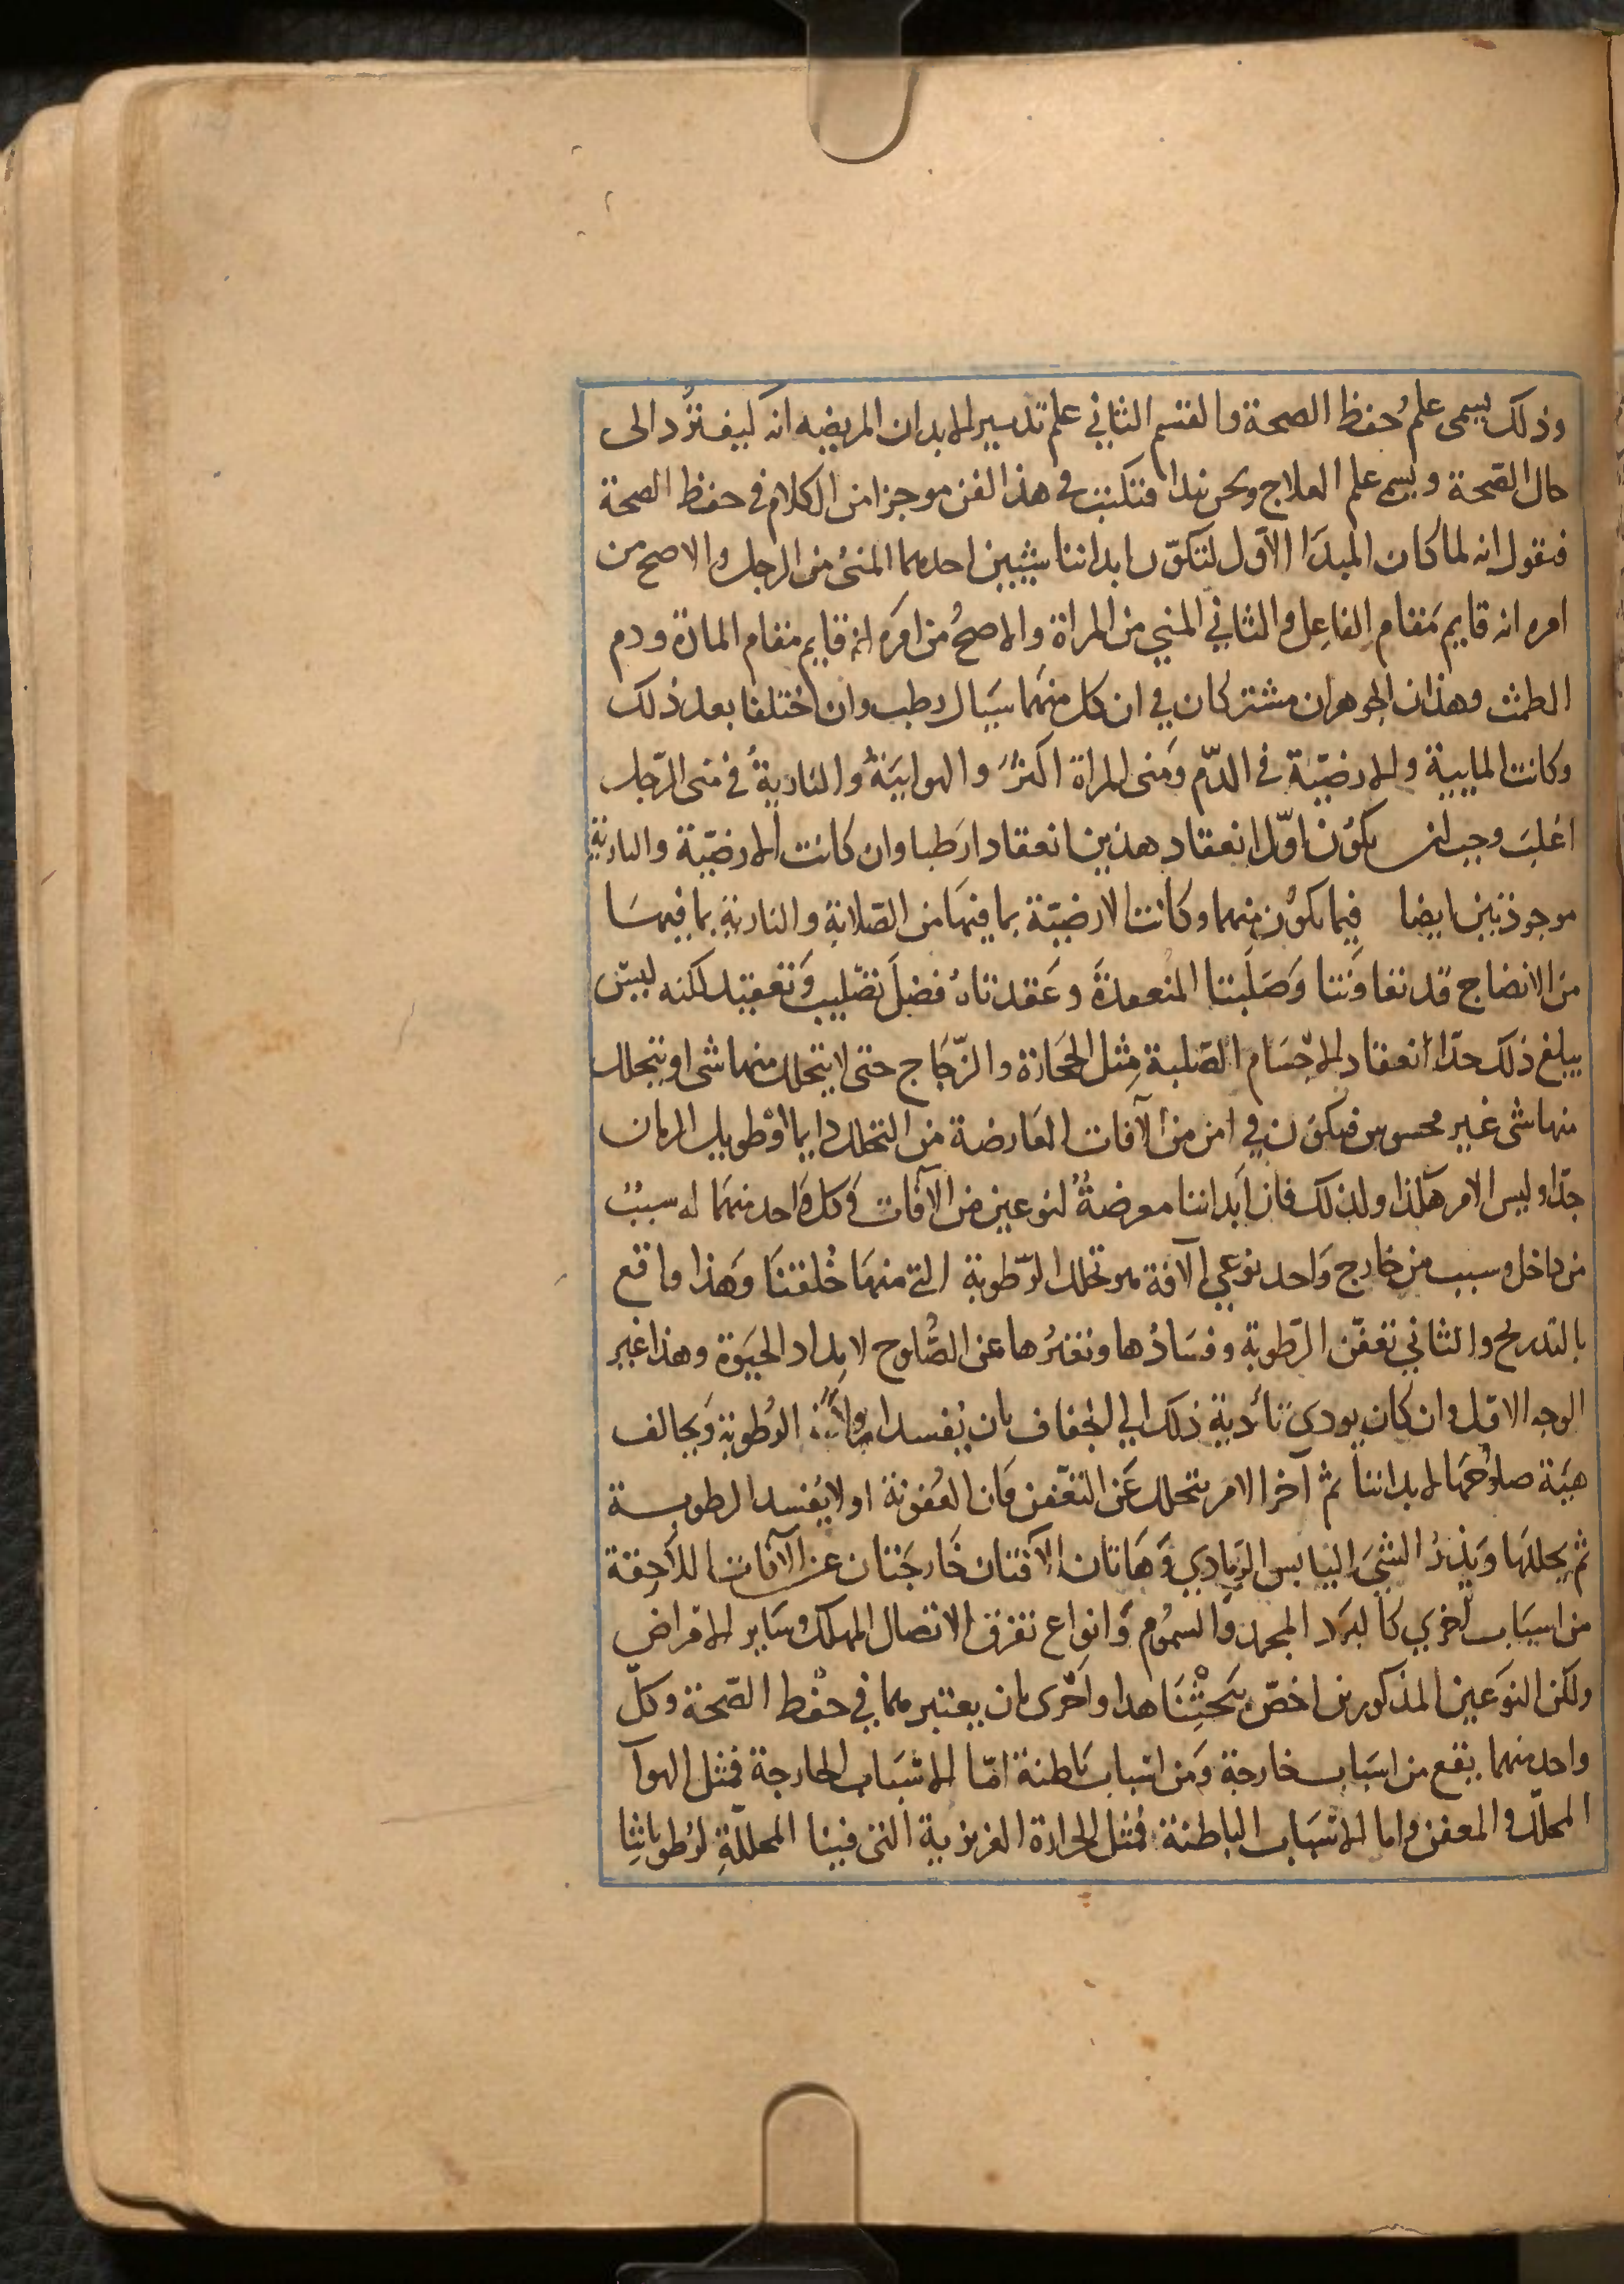 وذلك يسمى علم حفظ الصحة والقسم الثاني علم تدبير الابدان المريضه انه كيف تُرد الى
حال الصّحة ويسمى علم العلاج ونحن نبدا فنكتب في هذا الفن موجزا من الكلام في حفظ الصحة
فنقول انه لما كان المبدَا الاوّل لتكوّن ابداننا شيئين احدهما المنىُ من الرجل والاصح من
امره انه قايم مَقام الفاعِل والثاني المني من المراة والاصحُ من امرَه انه قايم مقام المادة ودم
الطمث وهذان الجوهران مشتركان في ان كل منهَما سَيال رطب وان اختلفا بعد ذلك
وكانت المايية والارضيّة في الدّم ومَنى المراة اكثرُ والهوايَيةُ والنارِيةُ في منى الرّجل
اغلبَ وجب ان يكوُن اوّل انعقاد هذين انعقادا رَطبا وان كانت الارضيّة والنارية
موجودتين ايضا فيما يكوُن منهما وكانت الارضيّة بما فيهَا من الصّلابة والنارية بما فيهَا
من الانضاج قد تعاوَنتا وَصَلّبتا المنعقدةَ وعَقدتاهُ فضلَ تصّليب وَتعقيد لكنه ليس
يبلغ ذلك حدّ انعقاد الاجسَام الصّلبة مِثل الحجارة والزّجَاج حتى لا يتحلل منها شى او يتحلل
منها شى غير محسوس فيكون في امن من الآفات العَارضة من التحلل دايما اوْ طويل الزمان
جدّا وليس الامر هكذا ولذلك فان اَبداننا معرضةُ لنوعين من الآفات وَكل وَاحد منهَما له سببُ
من داخل وسبب من خارج وَاحد نوعي الآفة هو تحلل الرّطوبة التى منهَا خُلقنَا وَهَذا واقع
بالتدريج والثاني تعفّن الرّطوبة وفسَادُها وتغيرُها عن الصُّلوح لامِداد الحيَوة وهذا غير
الوجه الاول وان كان يودي تَأدية ذلك الى الجفاف بان يُفسد اولاً الرُطوبة وَيخالف
هيَة صلوُحهَا لابداننا ثم آخر الامر يتحلل عَن التعّفن فان العُفونة اولا يُفسد الرطوبـة
ثم يحللهَا ويَذرُ الشىَ اليَابس الرَمادي وَهَاتان الآفتان خَارجَتان عن الآفات اللأحِقة
من اسبَاب اُخري كالبرَد المجمد والسموُم وَانواع تفرق الاتصال المهلك وسَاير الامراض
ولكن النوَعين المذكورين اخصّ ببَحثْنَا هدا واَحْرى بان يعتبرهما في حفْظ الصّحة وكلّ
واحد منهما يقع من اسبَاب خارجة وَمن اسَباب بَاطنة امّا الاسَباب الخارجة فمثل الهوآ
المحلّل والمعفن واما الاسبَاب الباطنة فمثل الحرارة الغريزية التى فينا المحللّةِ لرُطوباتِنا